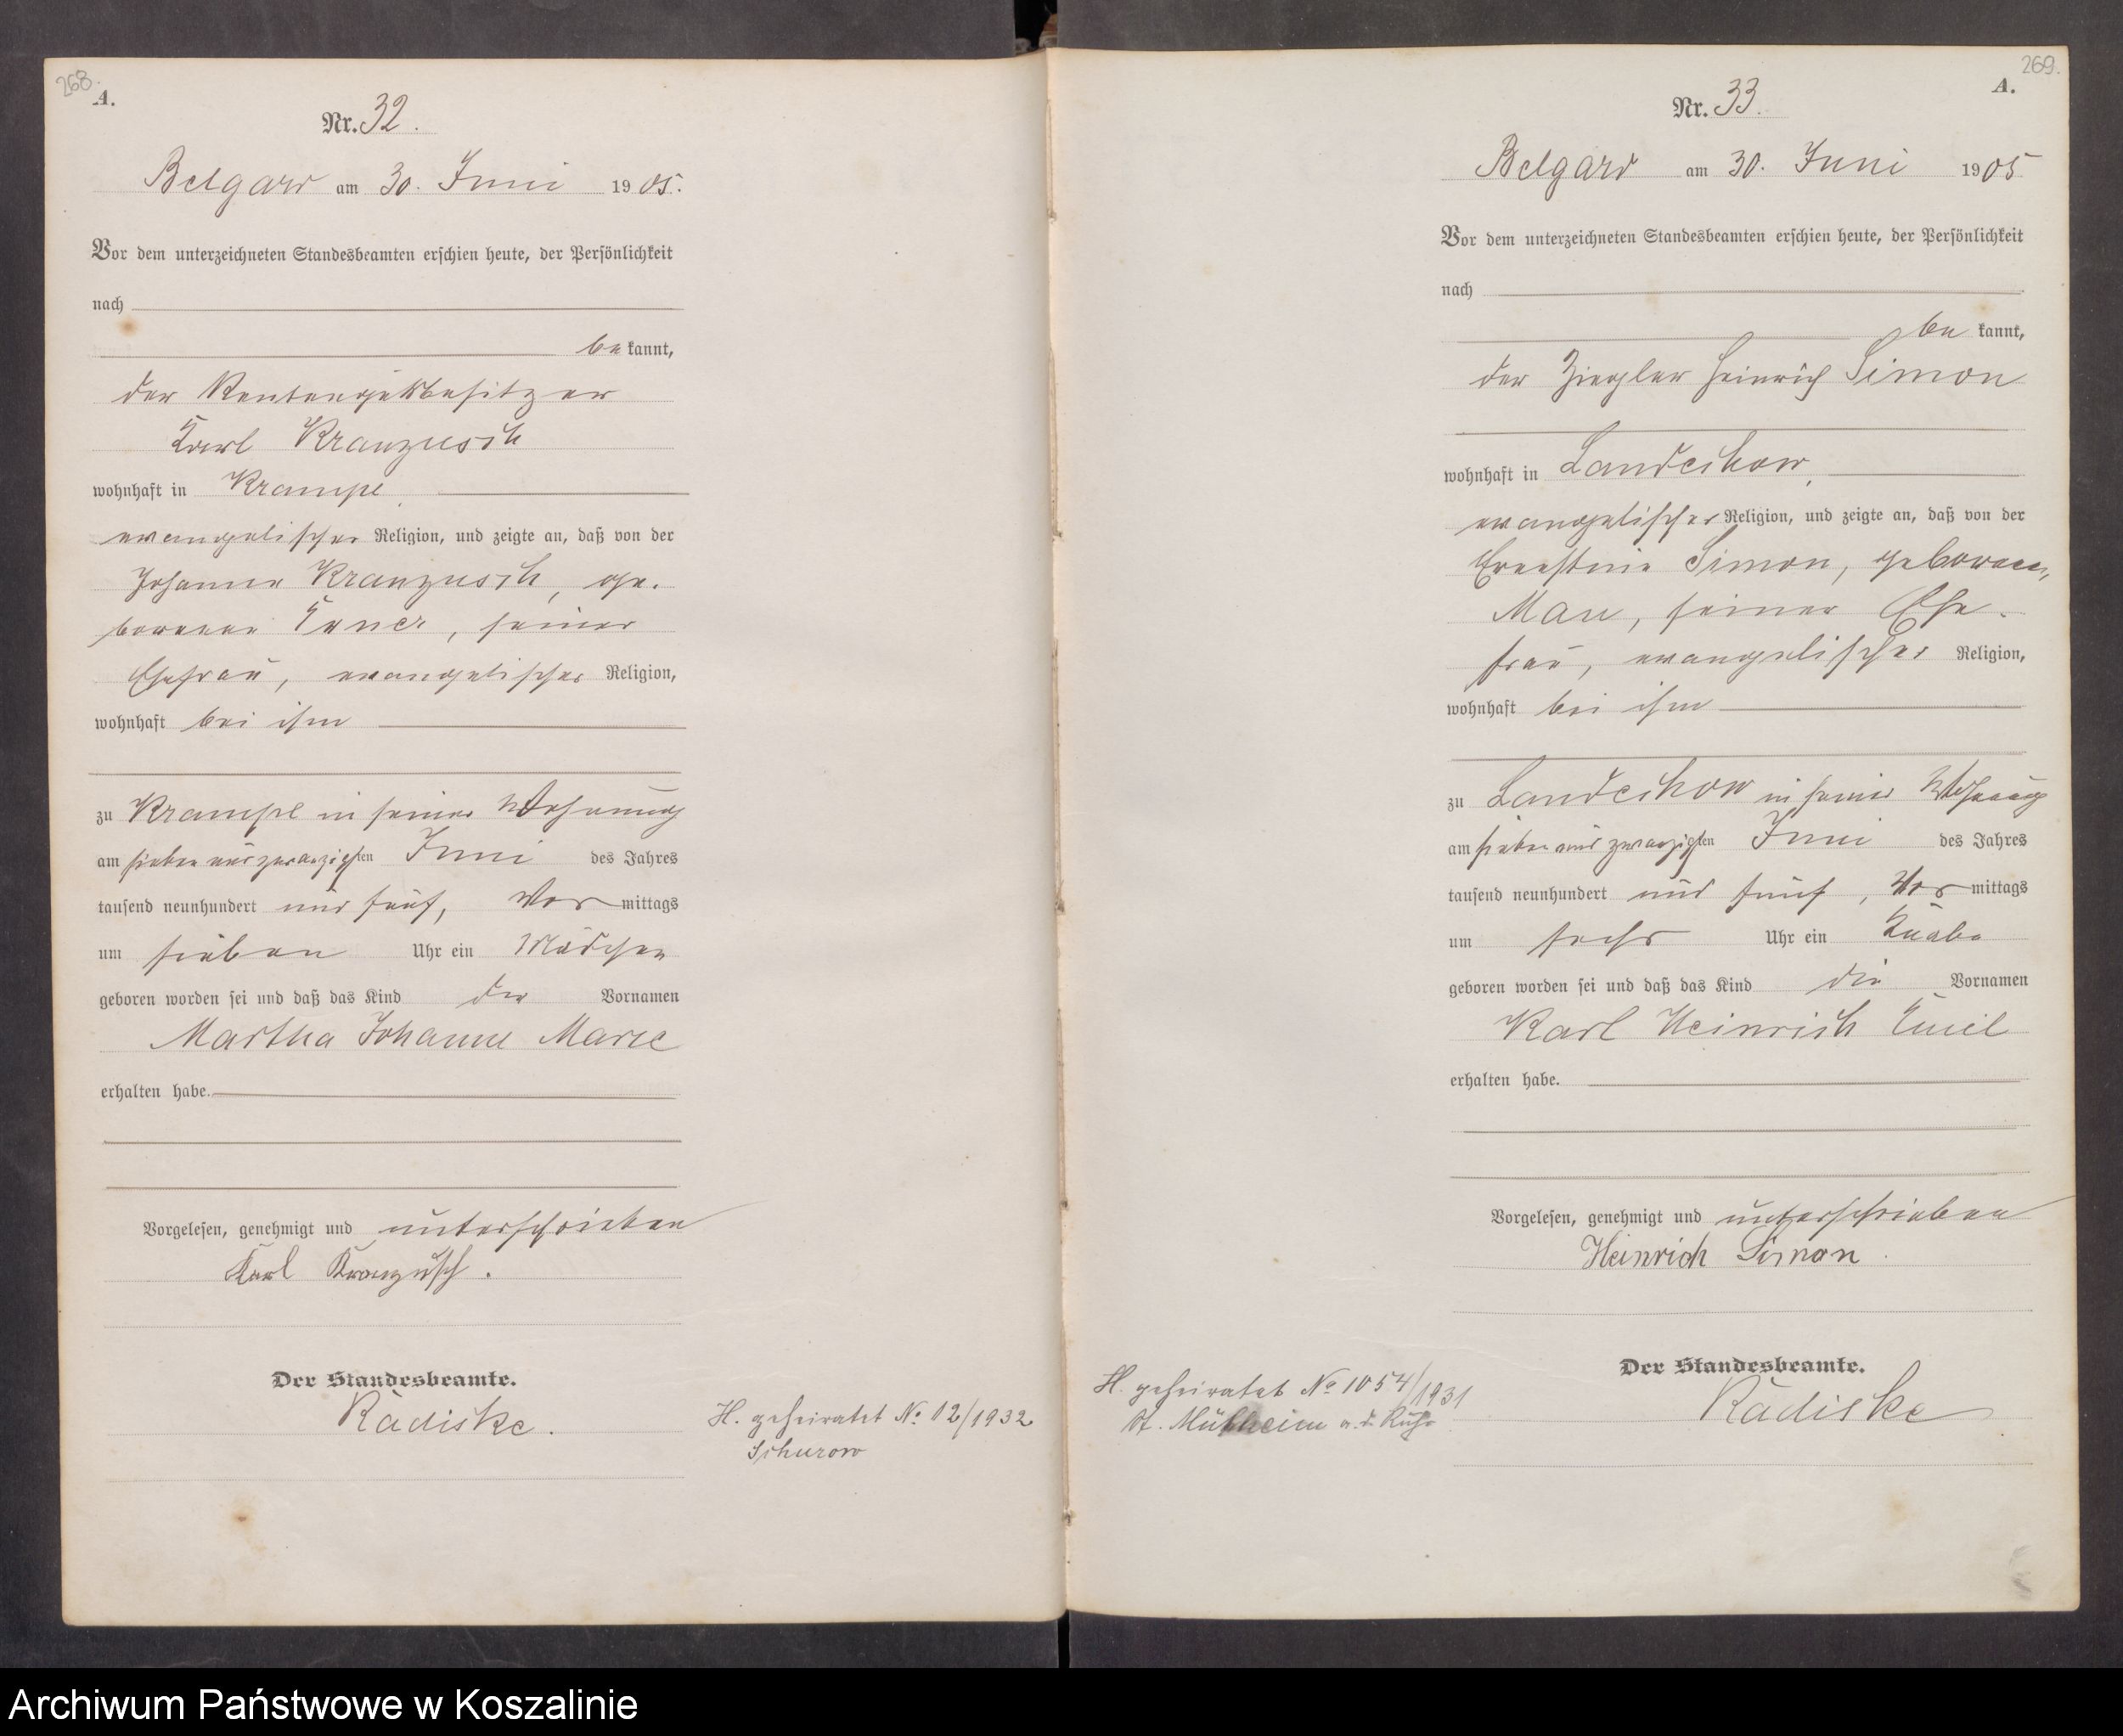 268.
A.
Nr. 32.
Belgard am 30. Juni 1905.
Vor dem unterzeichneten Standesbeamten erschien heute, der Persönlichkeit
nach
be kannt,
der Rentengutsbesitzer
Karl Kranzusch
wohnhaft in Krampe
evangelischer Religion, und zeigte an, daß von der
Johanne Kranzusch, ge-
borenen, seiner
Ehefrau, evangelischer Religion,
wohnhaft bei ihm
zu Krampe in seiner Wohnung
am sieben und zwanzigsten Juni des Jahres
tausend neunhundert und fünf, Vor mittags
um sieben Uhr ein Mädchen
geboren worden sei und daß das Kind die Vornamen
Martha Johanne Marie
erhalten habe.
Vorgelesen, genehmigt und unterschrieben
Karl Kranzusch.
Der Standesbeamte.
Radiske.
H. geheiratet No. 12/1932
Schurow
269.
A.
Nr. 33.
Belgard am 30. Juni 1905
Vor dem unterzeichneten Standesbeamten erschien heute, der Persönlichkeit
nach
be kannt,
der Ziegler Heinrich Simon
wohnhaft in Landechow,
evangelischer Religion, und zeigte an, daß von der
Ernestine Simon, geborenen,
Mau, seiner Ehe-
frau, evangelischer Religion,
wohnhaft bei ihm
zu Landechow in seiner Wohnung
am sieben und zwanzigsten Juni des Jahres
tausend neunhundert und fünf, Vor mittags
um sechs Uhr ein Knabe
geboren worden sei und daß das Kind die Vornamen
Karl Heinrich Emil
erhalten habe.
Vorgelesen, genehmigt und unterschrieben
Heinrich Simon.
Der Standesbeamte.
Radiske
H. geheiratet No 1054/1931
St. Mülheim a. d. Ruhr
Archiwum Państwowe w Koszalinie